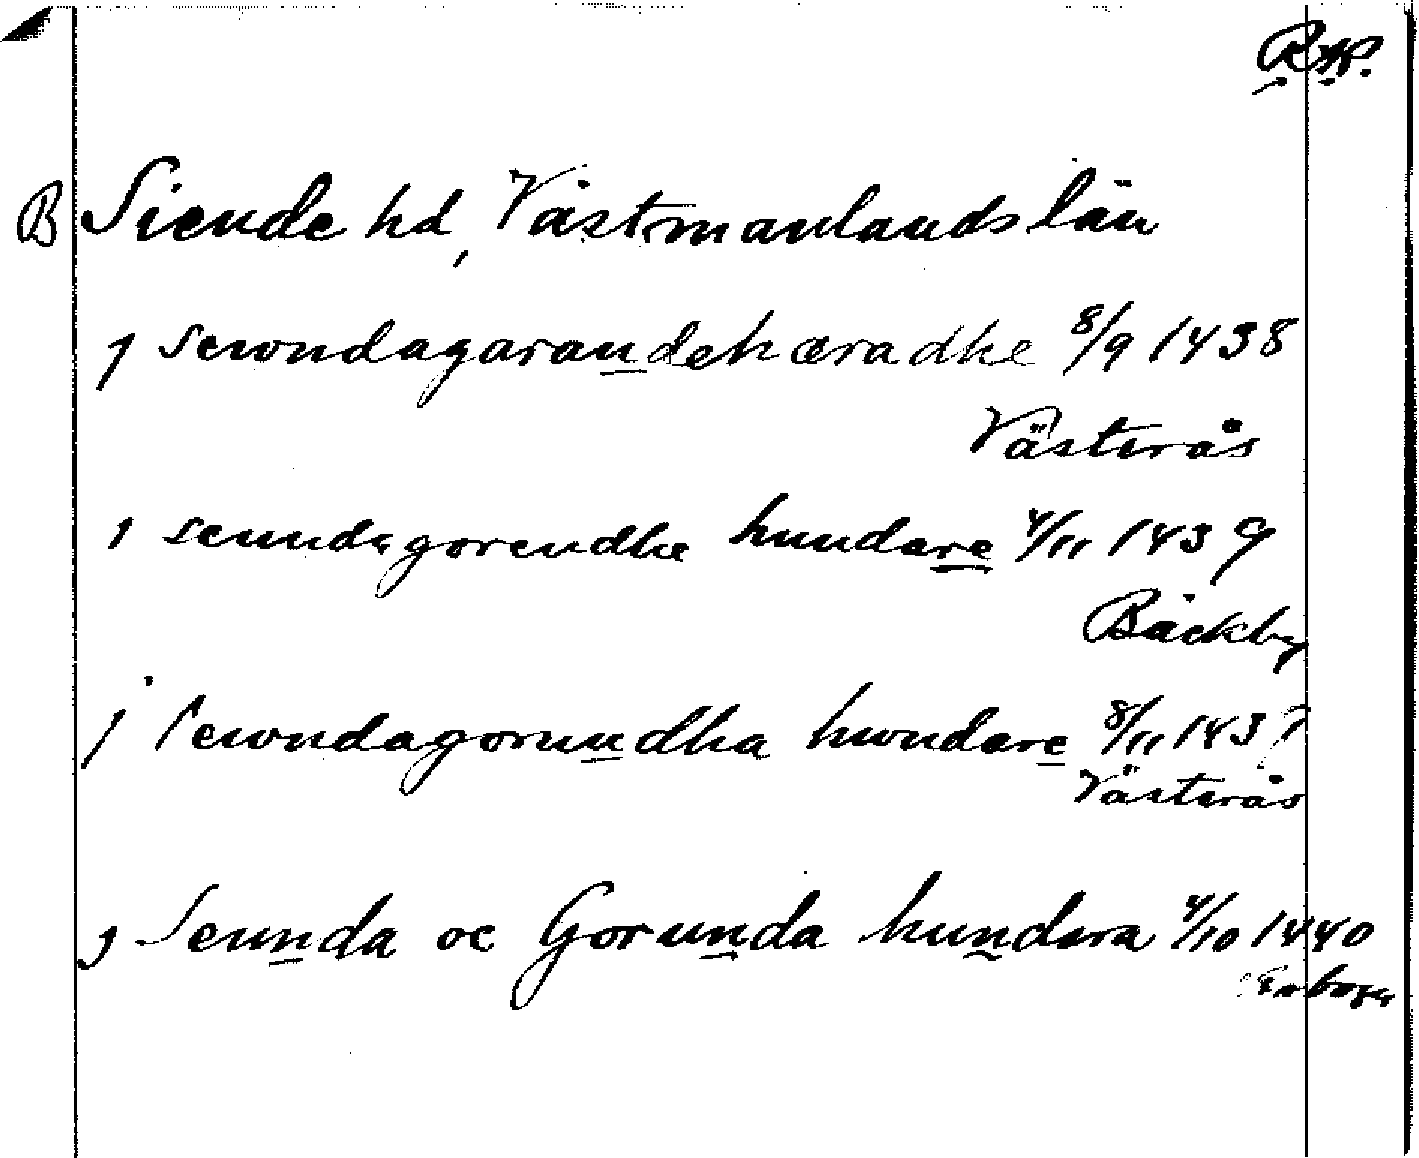 B Siende hd, Västmanlands län
j sewndagarandehæradhe 8/9 1438
Västerås
j seundagorendhe hundare 4/11 1439
Bäckby
j sewndagorundha hwndare 8/11 143?
Västerås
j Seunda oc Gorunda hundara 4/10 1440